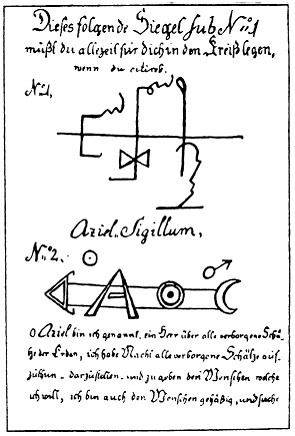 Dieses folgende Siegel sub Nº1
müßt du allezeit für dich in den Kreiß legen,
wenn du citirst.
Nº1.
Aziel. Sigillum.
Nº2.
O Aziel bin ich genannt, ein Herr über alle verborgene Schä-
tze der Erden, ich habe Macht alle verborgene Schätze auf-
zuthun darzustellen und zu geben den Menschen welche
ich will, ich bin auch den Menschen gehäßig, und suche